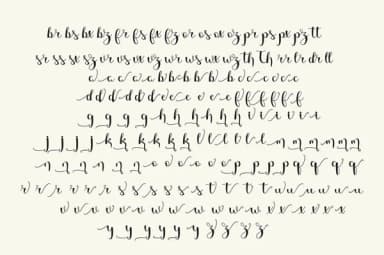 br bs bx bz fr fs fx fz or os ox oz pr ps px pz tt
sr ss sx sz vr vs vx vz wr ws wx wz th Th rr tr dr ll
a a a a a b b b b b b b d c c c c c
d d d d d d d e e e e e f f f f f f
g g g g g h h h h h h h i i i i i i
j j j j j k k k k k k l l l l l l m m m m m
n n n n n n o o o o o o p p p p p q q q q
r r r r r r r s s s s s s t t t t u u u u u u
v v v v v v w w w w w w x x x x x x
y y y y y y z z z z